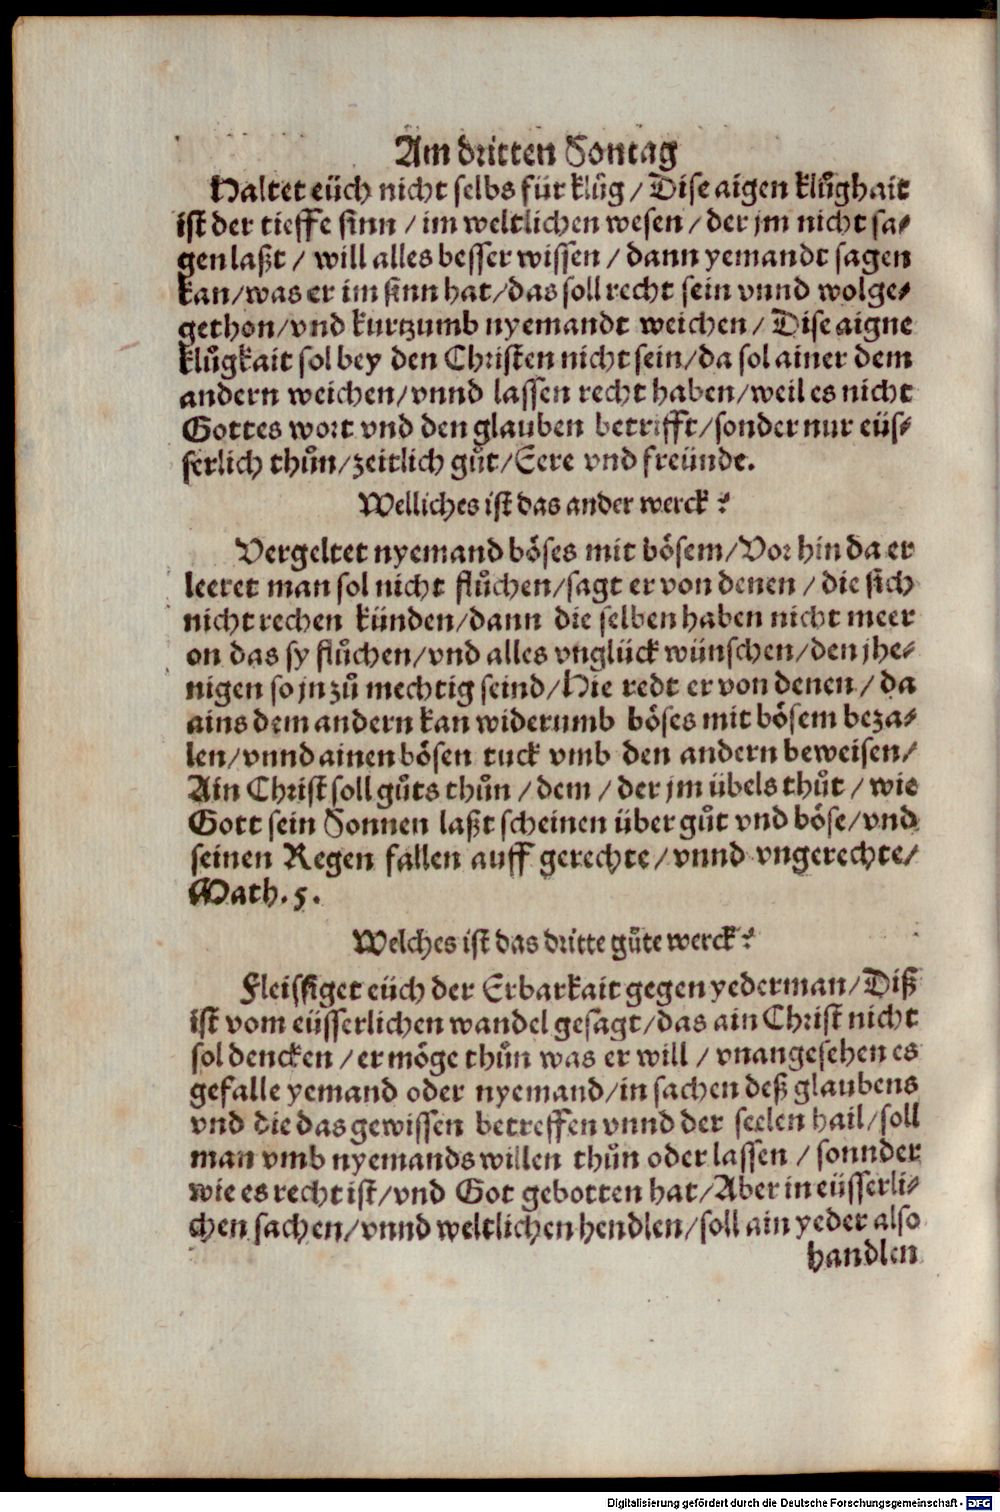 Am dritten Sontag
Haltet eüch nicht selbs für klůg / Dise aigen klůghait
ist der tieffe sinn / im weltlichen wesen / der jm nicht sa⸗
gen laßt / will alles besser wissen / dann yemandt sagen
kan / was er im sinn hat / das soll recht sein vnnd wolge⸗
gethon / vnd kurtzumb nyemandt weichen / Dise aigne
klůgkait sol bey den Christen nicht sein / da sol ainer dem
andern weichen / vnnd lassen recht haben / weil es nicht
Gottes wort vnd den glauben betrifft / sonder nur eüs⸗
serlich thůn / zeitlich gůt / Eere vnd freünde.
Welliches ist das ander werck?
Vergeltet nyemand böses mit bösem / Vor hin da er
leeret man sol nicht flůchen / sagt er von denen / die sich
nicht rechen künden / dann die selben haben nicht meer
on das sy flůchen / vnd alles vnglück wünschen / den jhe⸗
nigen so jn zů mechtig seind / Hie redt er von denen / da
ains dem andern kan widerumb böses mit bösem beza⸗
len / vnnd ainen bösen tuck vmb den andern beweisen /
Ain Christ soll gůts thůn / dem / der jm übels thůt / wie
Gott sein Sonnen laßt scheinen über gůt vnd böse / vnd
seinen Regen fallen auff gerechte / vnnd vngerechte /
Math. 5.
Welches ist das dritte gůte werck?
Fleissiget eüch der Erbarkait gegen yederman / Diß
ist vom eüsserlichen wandel gesagt / das ain Christ nicht
sol dencken / er möge thůn was er will / vnangesehen es
gefalle yemand oder nyemand / in sachen deß glaubens
vnd die das gewissen betreffen vnnd der seelen hail / soll
man vmb nyemands willen thůn oder lassen / sonnder
wie es recht ist / vnd Got gebotten hat / Aber in eüsserli⸗
chen sachen / vnnd weltlichen hendlen / soll ain yeder also
handlen
Digitalisierung gefördert durch die Deutsche Forschungsgemeinschaft - DFG